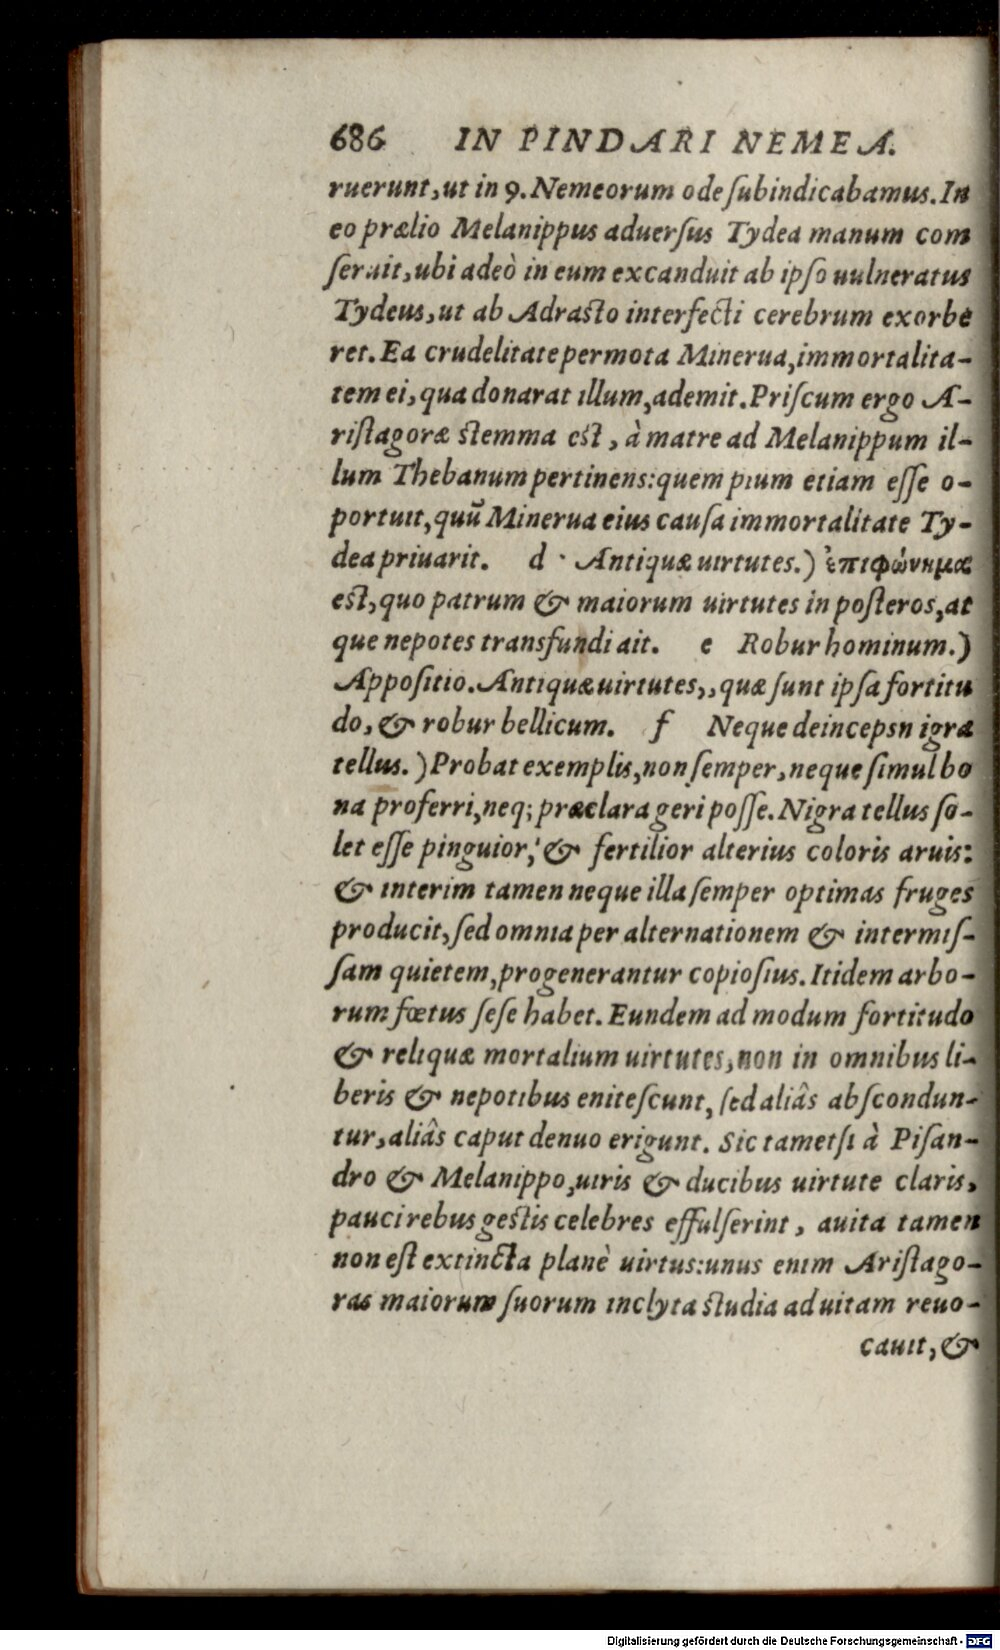 686 IN PINDARI NEMEA.
ruerunt, ut in 9. Nemeorum ode ſubindicabamus. In
eo prælio Melanippus aduerſus Tydea manum com
ſeruit, ubi adeò in eum excanduit ab ipſo uulneratus
Tydeus, ut ab Adraſto interfecti cerebrum exorbe
ret. Ea crudelitate permota Minerua, immortalita-
tem ei, qua donarat illum, ademit. Priſcum ergo A-
riſtagoræ ſtemma eſt, à matre ad Melanippum il-
lum Thebanum pertinens: quem pium etiam eſſe o-
portuit, quũ Minerua eius cauſa immortalitate Ty-
dea priuarit. d · Antiquæ uirtutes.) ἐπιφώνημα
eſt, quo patrum & maiorum uirtutes in poſteros, at
que nepotes transfundi ait. e Robur hominum.)
Appoſitio. Antiquæ uirtutes,, quæ ſunt ipſa fortitu
do, & robur bellicum. f Neque deincepsn igra
tellus.) Probat exemplis, non ſemper, neque ſimul bo
na proferri, neq; præclara geri poſſe. Nigra tellus ſo-
let eſſe pinguior, & fertilior alterius coloris aruis:
& interim tamen neque illa ſemper optimas fruges
producit, ſed omnia per alternationem & intermiſ-
ſam quietem, progenerantur copioſius. Itidem arbo-
rum fœtus ſeſe habet. Eundem ad modum fortitudo
& reliquæ mortalium uirtutes, non in omnibus li-
beris & nepotibus eniteſcunt, ſed aliâs abſcondun-
tur, aliâs caput denuo erigunt. Sic tametſi à Piſan-
dro & Melanippo, uiris & ducibus uirtute claris,
pauci rebus geſtis celebres effulſerint, auita tamen
non eſt extincta planè uirtus: unus enim Ariſtago-
ras maiorum ſuorum inclyta ſtudia ad uitam reuo-
cauit, &
Digitalisierung gefördert durch die Deutsche Forschungsgemeinschaft - DFG